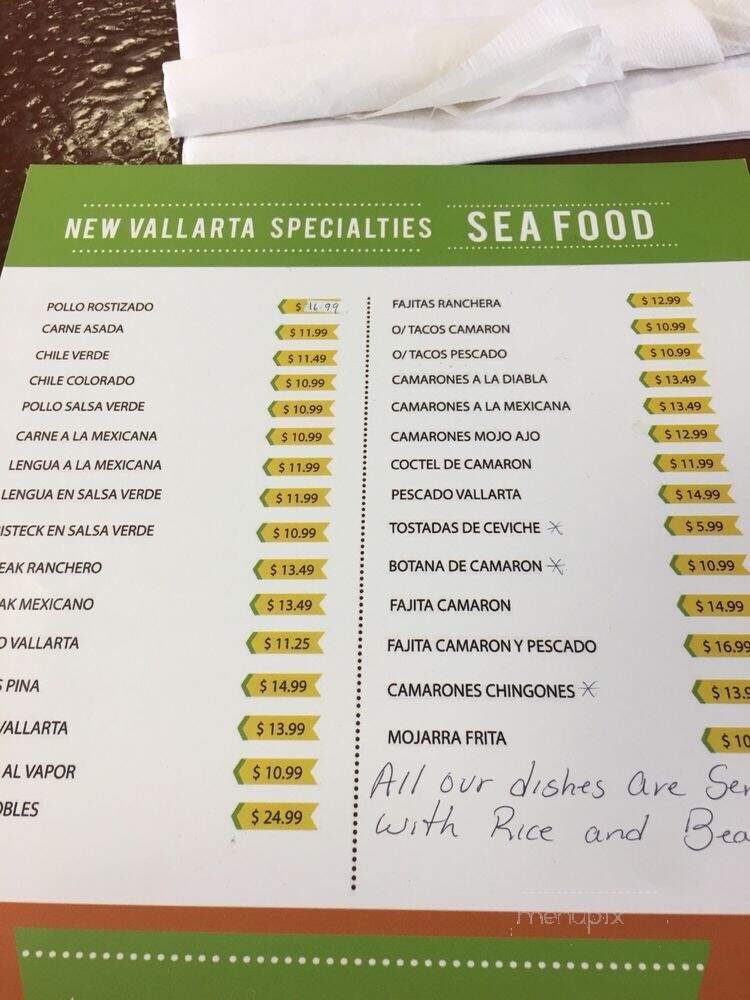 NEW VALLARTA SPECIALTIES
POLLO ROSTIZADO $ 16.99
CARNE ASADA $ 11.99
CHILE VERDE $ 11.49
CHILE COLORADO $ 10.99
POLLO SALSA VERDE $ 10.99
CARNE A LA MEXICANA $ 10.99
LENGUA A LA MEXICANA $ 11.99
LENGUA EN SALSA VERDE $ 11.99
ISTECK EN SALSA VERDE $ 10.99
EAK RANCHERO $ 13.49
AK MEXICANO $ 13.49
O VALLARTA $ 11.25
S PINA $ 14.99
VALLARTA $ 13.99
AL VAPOR $ 10.99
OBLES $ 24.99
SEA FOOD
FAJITAS RANCHERA $ 12.99
O/ TACOS CAMARON $ 10.99
O/ TACOS PESCADO $ 10.99
CAMARONES A LA DIABLA $ 13.49
CAMARONES A LA MEXICANA $ 13.49
CAMARONES MOJO AJO $ 12.99
COCTEL DE CAMARON $ 11.99
PESCADO VALLARTA $ 14.99
TOSTADAS DE CEVICHE * $ 5.99
BOTANA DE CAMARON * $ 10.99
FAJITA CAMARON $ 14.99
FAJITA CAMARON Y PESCADO $ 16.99
CAMARONES CHINGONES * $ 13.9
MOJARRA FRITA $ 10
All our dishes are Ser
with Rice and Bea
menupix